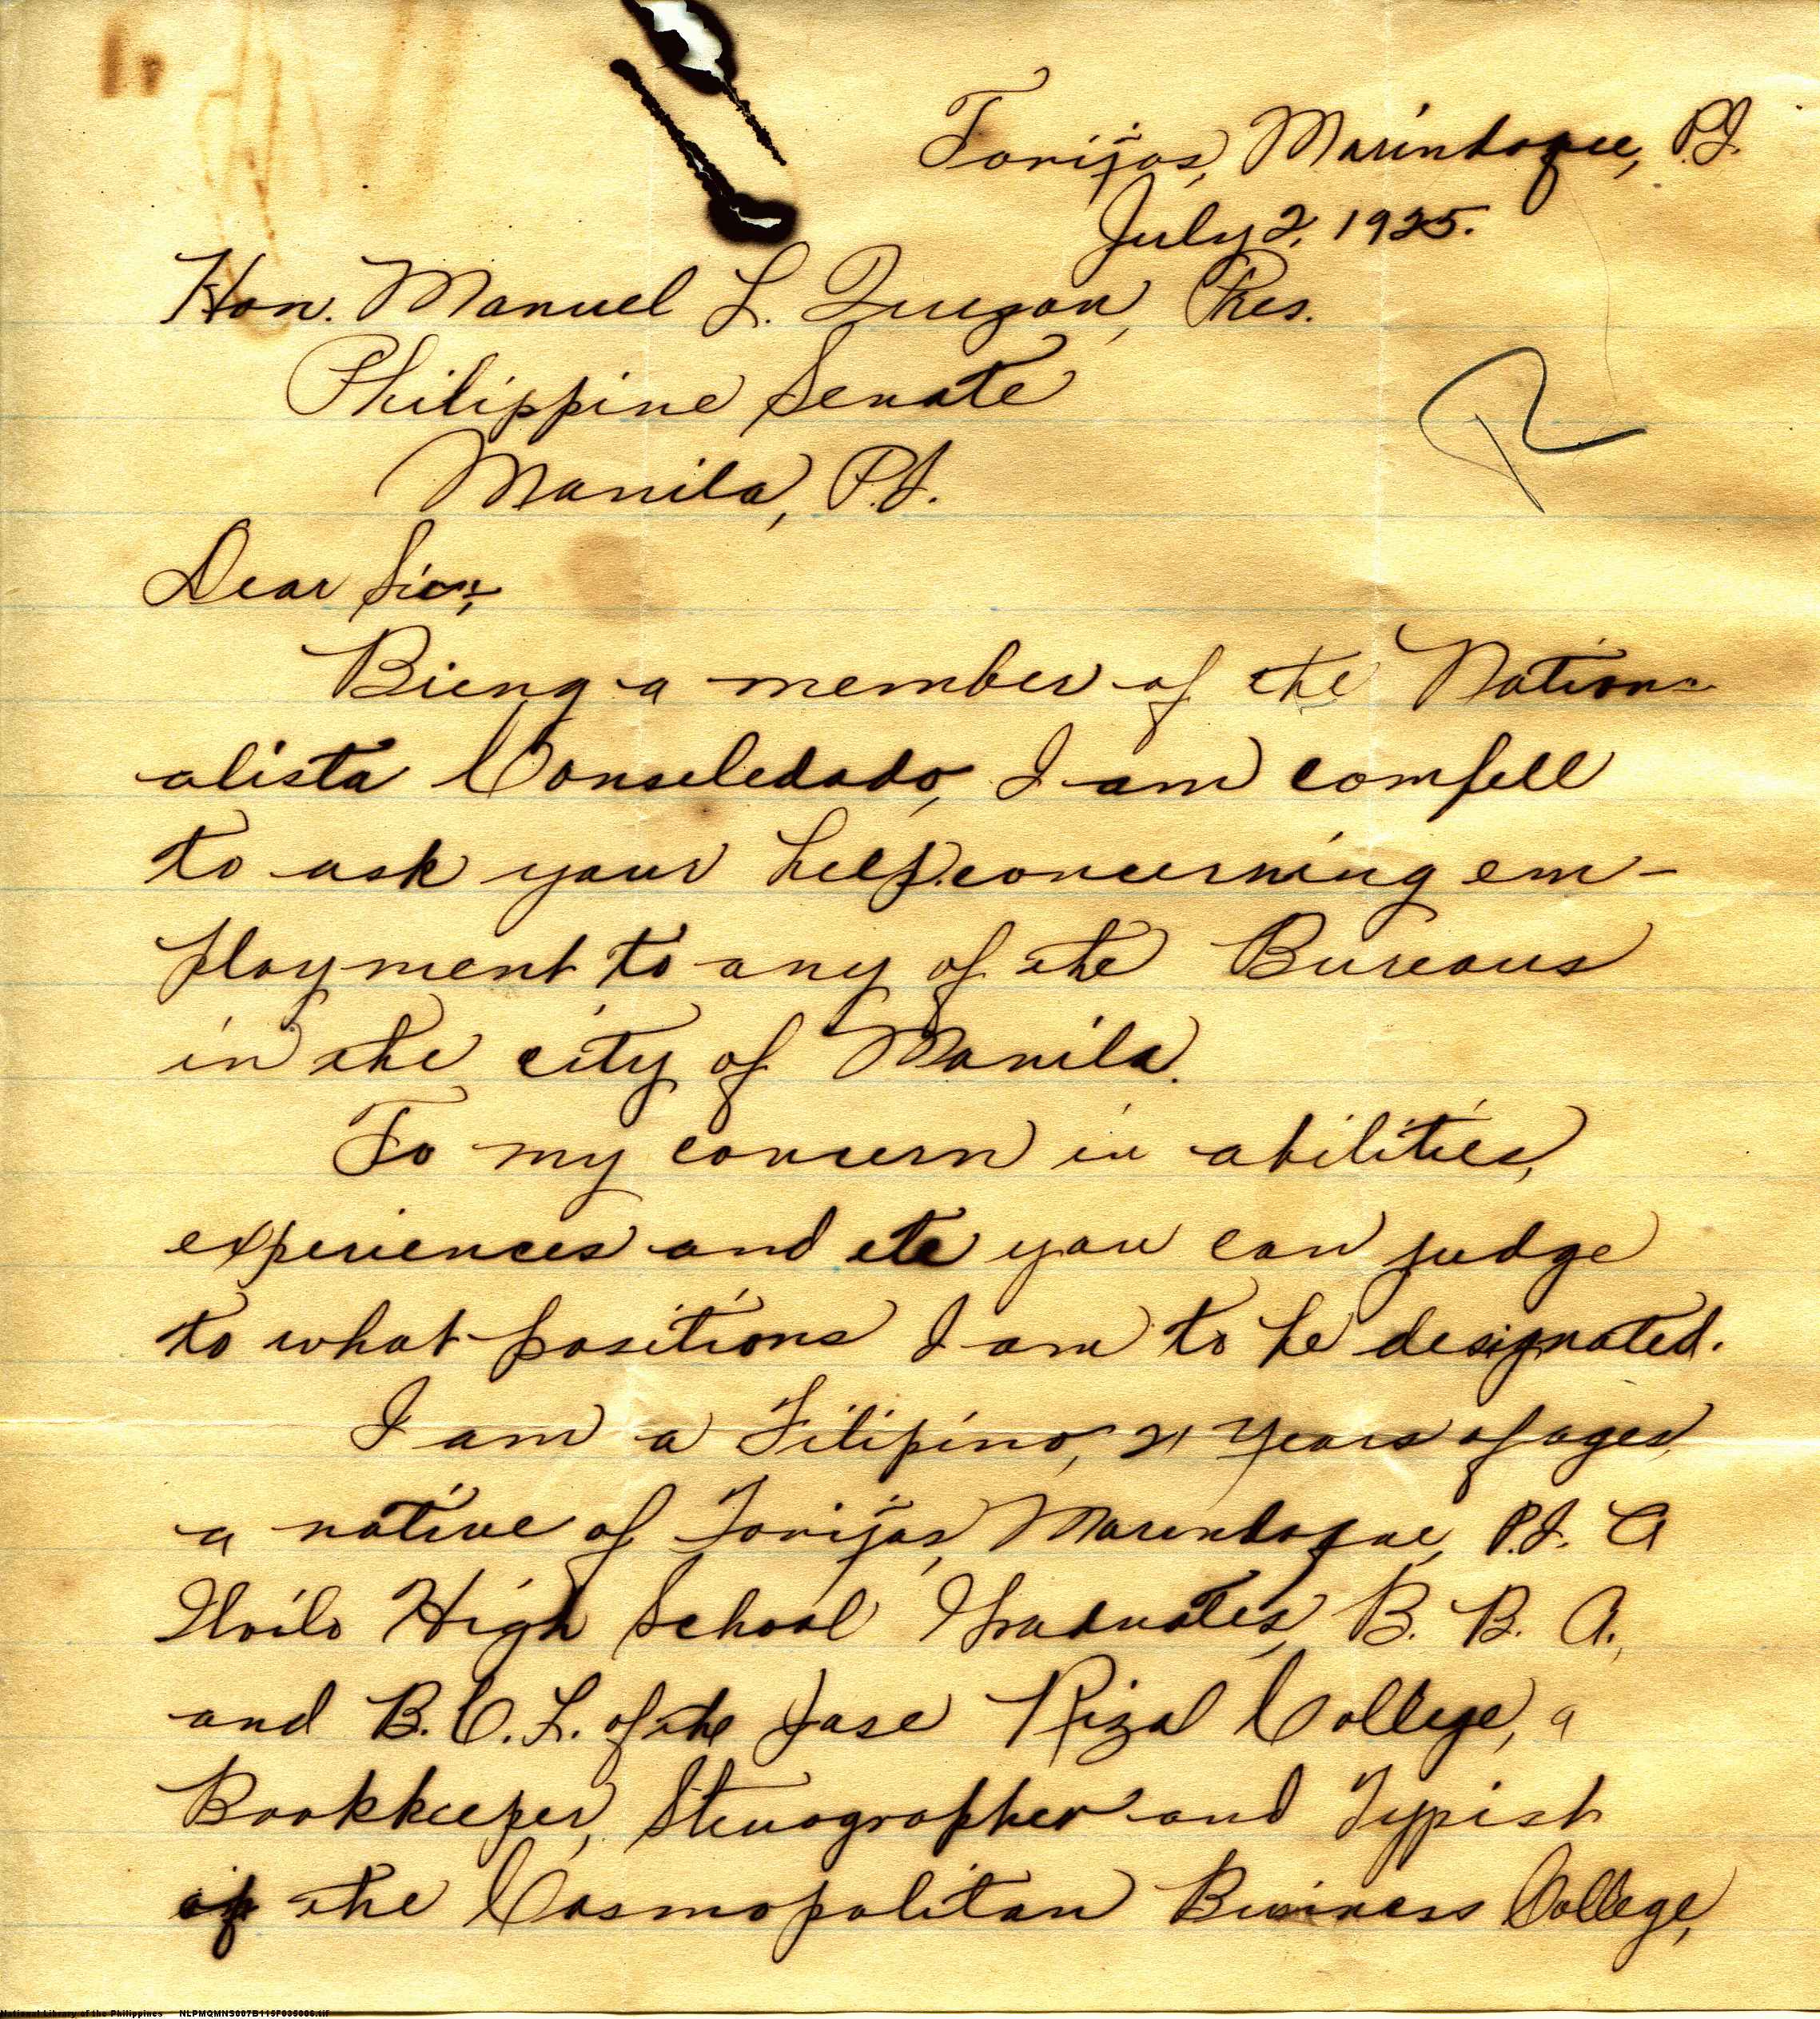 Torrijos, Marinduque, P.I.
July 2, 1925.
Hon. Manuel L. Quezon, Pres.
Philippine Senate
Manila, P.I.
R
Dear Sir;
Bieng a member of the Nation-
alista Conseledado, I am compell
to ask your help concerning em-
ployment to any of the Bureaus
in the city of Manila.
To my concern in abilities,
experiences and etc you can judge
to what positions I am to be designated.
I am a Filipino, 21 years of ages,
a native of Torrijos, Marinduque, P.I. A
Iloilo High School Graduates, B. B. A.,
and B.C.L. of the Jose Rizal College, a
Bookkeeper, Stenographer and Typist
of the Cosmopolitan Business College,
National Library of the Philippines NLPMQMNS007B115F035006.tif